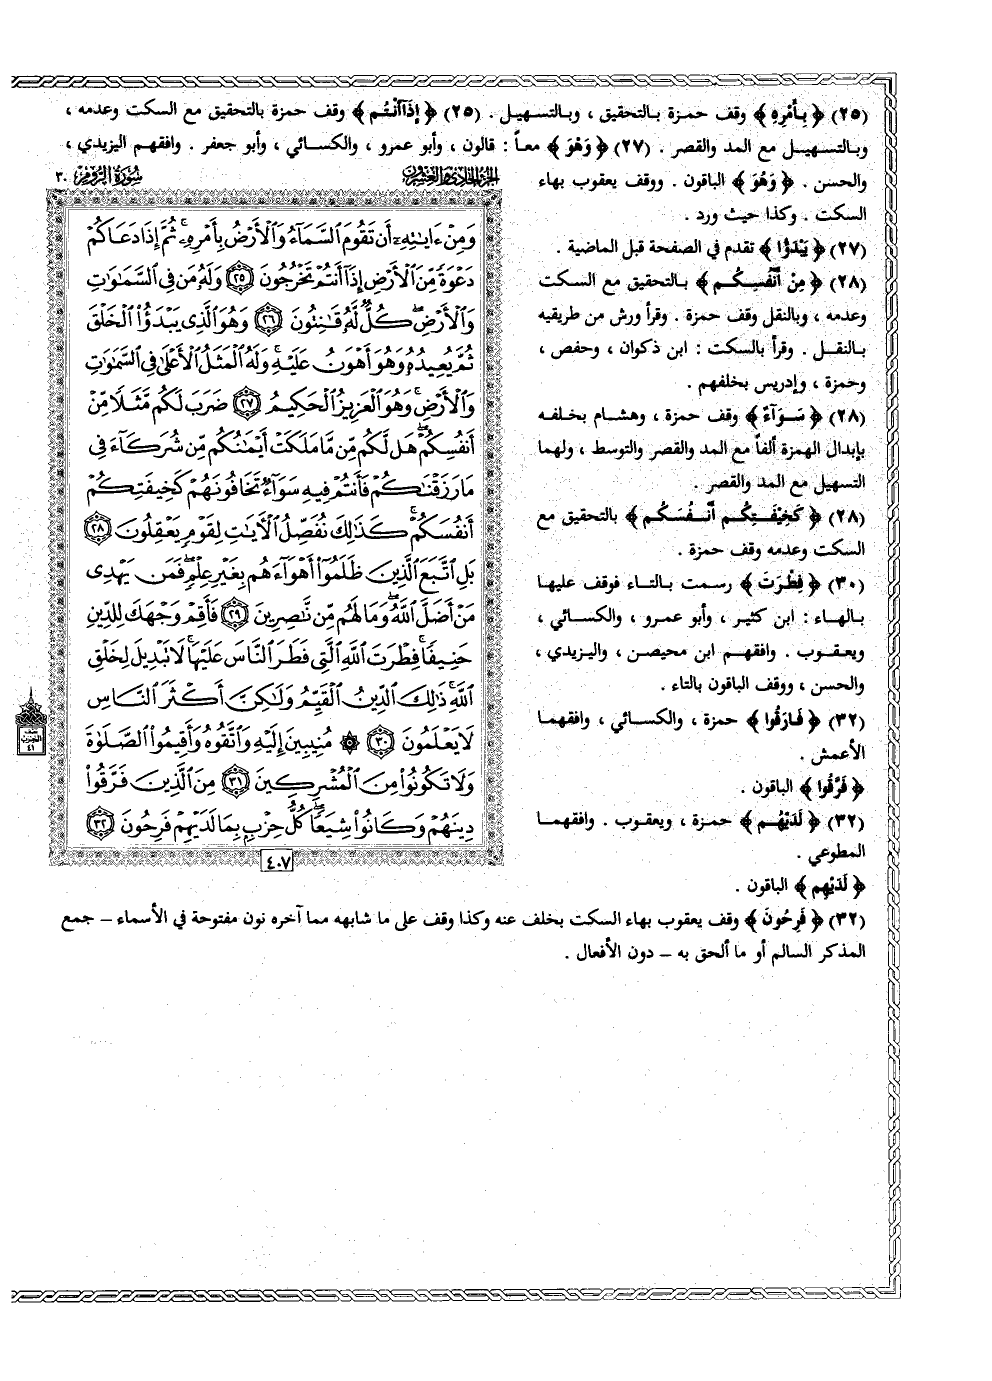 (٢٥) ﴿ بِأَمْرِهِ ﴾ وقف حمزة بالتحقيق ، وبالتسهيل . (٢٥) ﴿ إِذَاأَنْتُم ﴾ وقف حمزة بالتحقيق مع السكت وعدمه ،
وبالتسهيل مع المد والقصر . (٢٧) ﴿ وَهْوَ ﴾ معاً : قالون ، وأبو عمرو ، والكسائي ، وأبو جعفر . وافقهم اليزيدي ،
والحسن . ﴿ وَهُوَ ﴾ الباقون . ووقف يعقوب بهاء
السكت . وكذا حيث ورد .
(٢٧) ﴿ يَبْدَؤُا ﴾ تقدم في الصفحة قبل الماضية .
(٢٨) ﴿ مِنْ أَنْفُسِكُم ﴾ بالتحقيق مع السكت
وعدمه ، وبالنقل وقف حمزة . وقرأ ورش من طريقيه
بالنقل . وقرأ بالسكت : ابن ذكوان ، وحفص ،
وحمزة ، وإدريس بخلفهم .
(٢٨) ﴿ سَوَآءٌ ﴾ وقف حمزة ، وهشام بخلفه
بإبدال الهمزة ألفاً مع المد والقصر والتوسط ، ولهما
التسهيل مع المد والقصر .
(٢٨) ﴿ كَخِيْفَتِكُم أَنْفُسَكُم ﴾ بالتحقيق مع
السكت وعدمه وقف حمزة .
(٣٠) ﴿ فِطْرَتَ ﴾ رسمت بالتاء فوقف عليها
بالهاء : ابن كثير ، وأبو عمرو ، والكسائي ،
ويعقوب . وافقهم ابن محيصن ، واليزيدي ،
والحسن ، ووقف الباقون بالتاء .
(٣٢) ﴿ فَارَقُوا ﴾ حمزة ، والكسائي ، وافقهما
الأعمش .
﴿ فَرَّقُوا ﴾ الباقون .
(٣٢) ﴿ لَدَيْهُم ﴾ حمزة ، ويعقوب . وافقهما
المطوعي .
﴿ لَدَيْهِم ﴾ الباقون .
(٣٢) ﴿ فَرِحُونَ ﴾ وقف يعقوب بهاء السكت بخلف عنه وكذا وقف على ما شابهه مما آخره نون مفتوحة في الأسماء – جمع
المذكر السالم أو ما ألحق به – دون الأفعال .
الجزء الحادي والعشرون
سورة الروم ٣٠
وَمِنْ ءَايَٰتِهِۦٓ أَن تَقُومَ ٱلسَّمَآءُ وَٱلْأَرْضُ بِأَمْرِهِۦ ۚ ثُمَّ إِذَا دَعَاكُمْ
دَعْوَةً مِّنَ ٱلْأَرْضِ إِذَآ أَنتُمْ تَخْرُجُونَ ٢٥ وَلَهُۥ مَن فِى ٱلسَّمَٰوَٰتِ
وَٱلْأَرْضِ ۖ كُلٌّ لَّهُۥ قَٰنِتُونَ ٢٦ وَهُوَ ٱلَّذِى يَبْدَؤُا۟ ٱلْخَلْقَ
ثُمَّ يُعِيدُهُۥ وَهُوَ أَهْوَنُ عَلَيْهِ ۚ وَلَهُ ٱلْمَثَلُ ٱلْأَعْلَىٰ فِى ٱلسَّمَٰوَٰتِ
وَٱلْأَرْضِ ۚ وَهُوَ ٱلْعَزِيزُ ٱلْحَكِيمُ ٢٧ ضَرَبَ لَكُم مَّثَلًا مِّنْ
أَنفُسِكُمْ ۖ هَل لَّكُم مِّن مَّا مَلَكَتْ أَيْمَٰنُكُم مِّن شُرَكَآءَ فِى
مَا رَزَقْنَٰكُمْ فَأَنتُمْ فِيهِ سَوَآءٌ تَخَافُونَهُمْ كَخِيفَتِكُمْ
أَنفُسَكُمْ ۚ كَذَٰلِكَ نُفَصِّلُ ٱلْءَايَٰتِ لِقَوْمٍ يَعْقِلُونَ ٢٨
بَلِ ٱتَّبَعَ ٱلَّذِينَ ظَلَمُوٓا۟ أَهْوَآءَهُم بِغَيْرِ عِلْمٍ ۖ فَمَن يَهْدِى
مَنْ أَضَلَّ ٱللَّهُ ۖ وَمَا لَهُم مِّن نَّٰصِرِينَ ٢٩ فَأَقِمْ وَجْهَكَ لِلدِّينِ
حَنِيفًا ۚ فِطْرَتَ ٱللَّهِ ٱلَّتِى فَطَرَ ٱلنَّاسَ عَلَيْهَا ۚ لَا تَبْدِيلَ لِخَلْقِ
ٱللَّهِ ۚ ذَٰلِكَ ٱلدِّينُ ٱلْقَيِّمُ وَلَٰكِنَّ أَكْثَرَ ٱلنَّاسِ
لَا يَعْلَمُونَ ٣٠ ۞ مُنِيبِينَ إِلَيْهِ وَٱتَّقُوهُ وَأَقِيمُوا۟ ٱلصَّلَوٰةَ
وَلَا تَكُونُوا۟ مِنَ ٱلْمُشْرِكِينَ ٣١ مِنَ ٱلَّذِينَ فَرَّقُوا۟
دِينَهُمْ وَكَانُوا۟ شِيَعًا ۖ كُلُّ حِزْبٍۭ بِمَا لَدَيْهِمْ فَرِحُونَ ٣٢
٤٠٧
الحزب
٤١